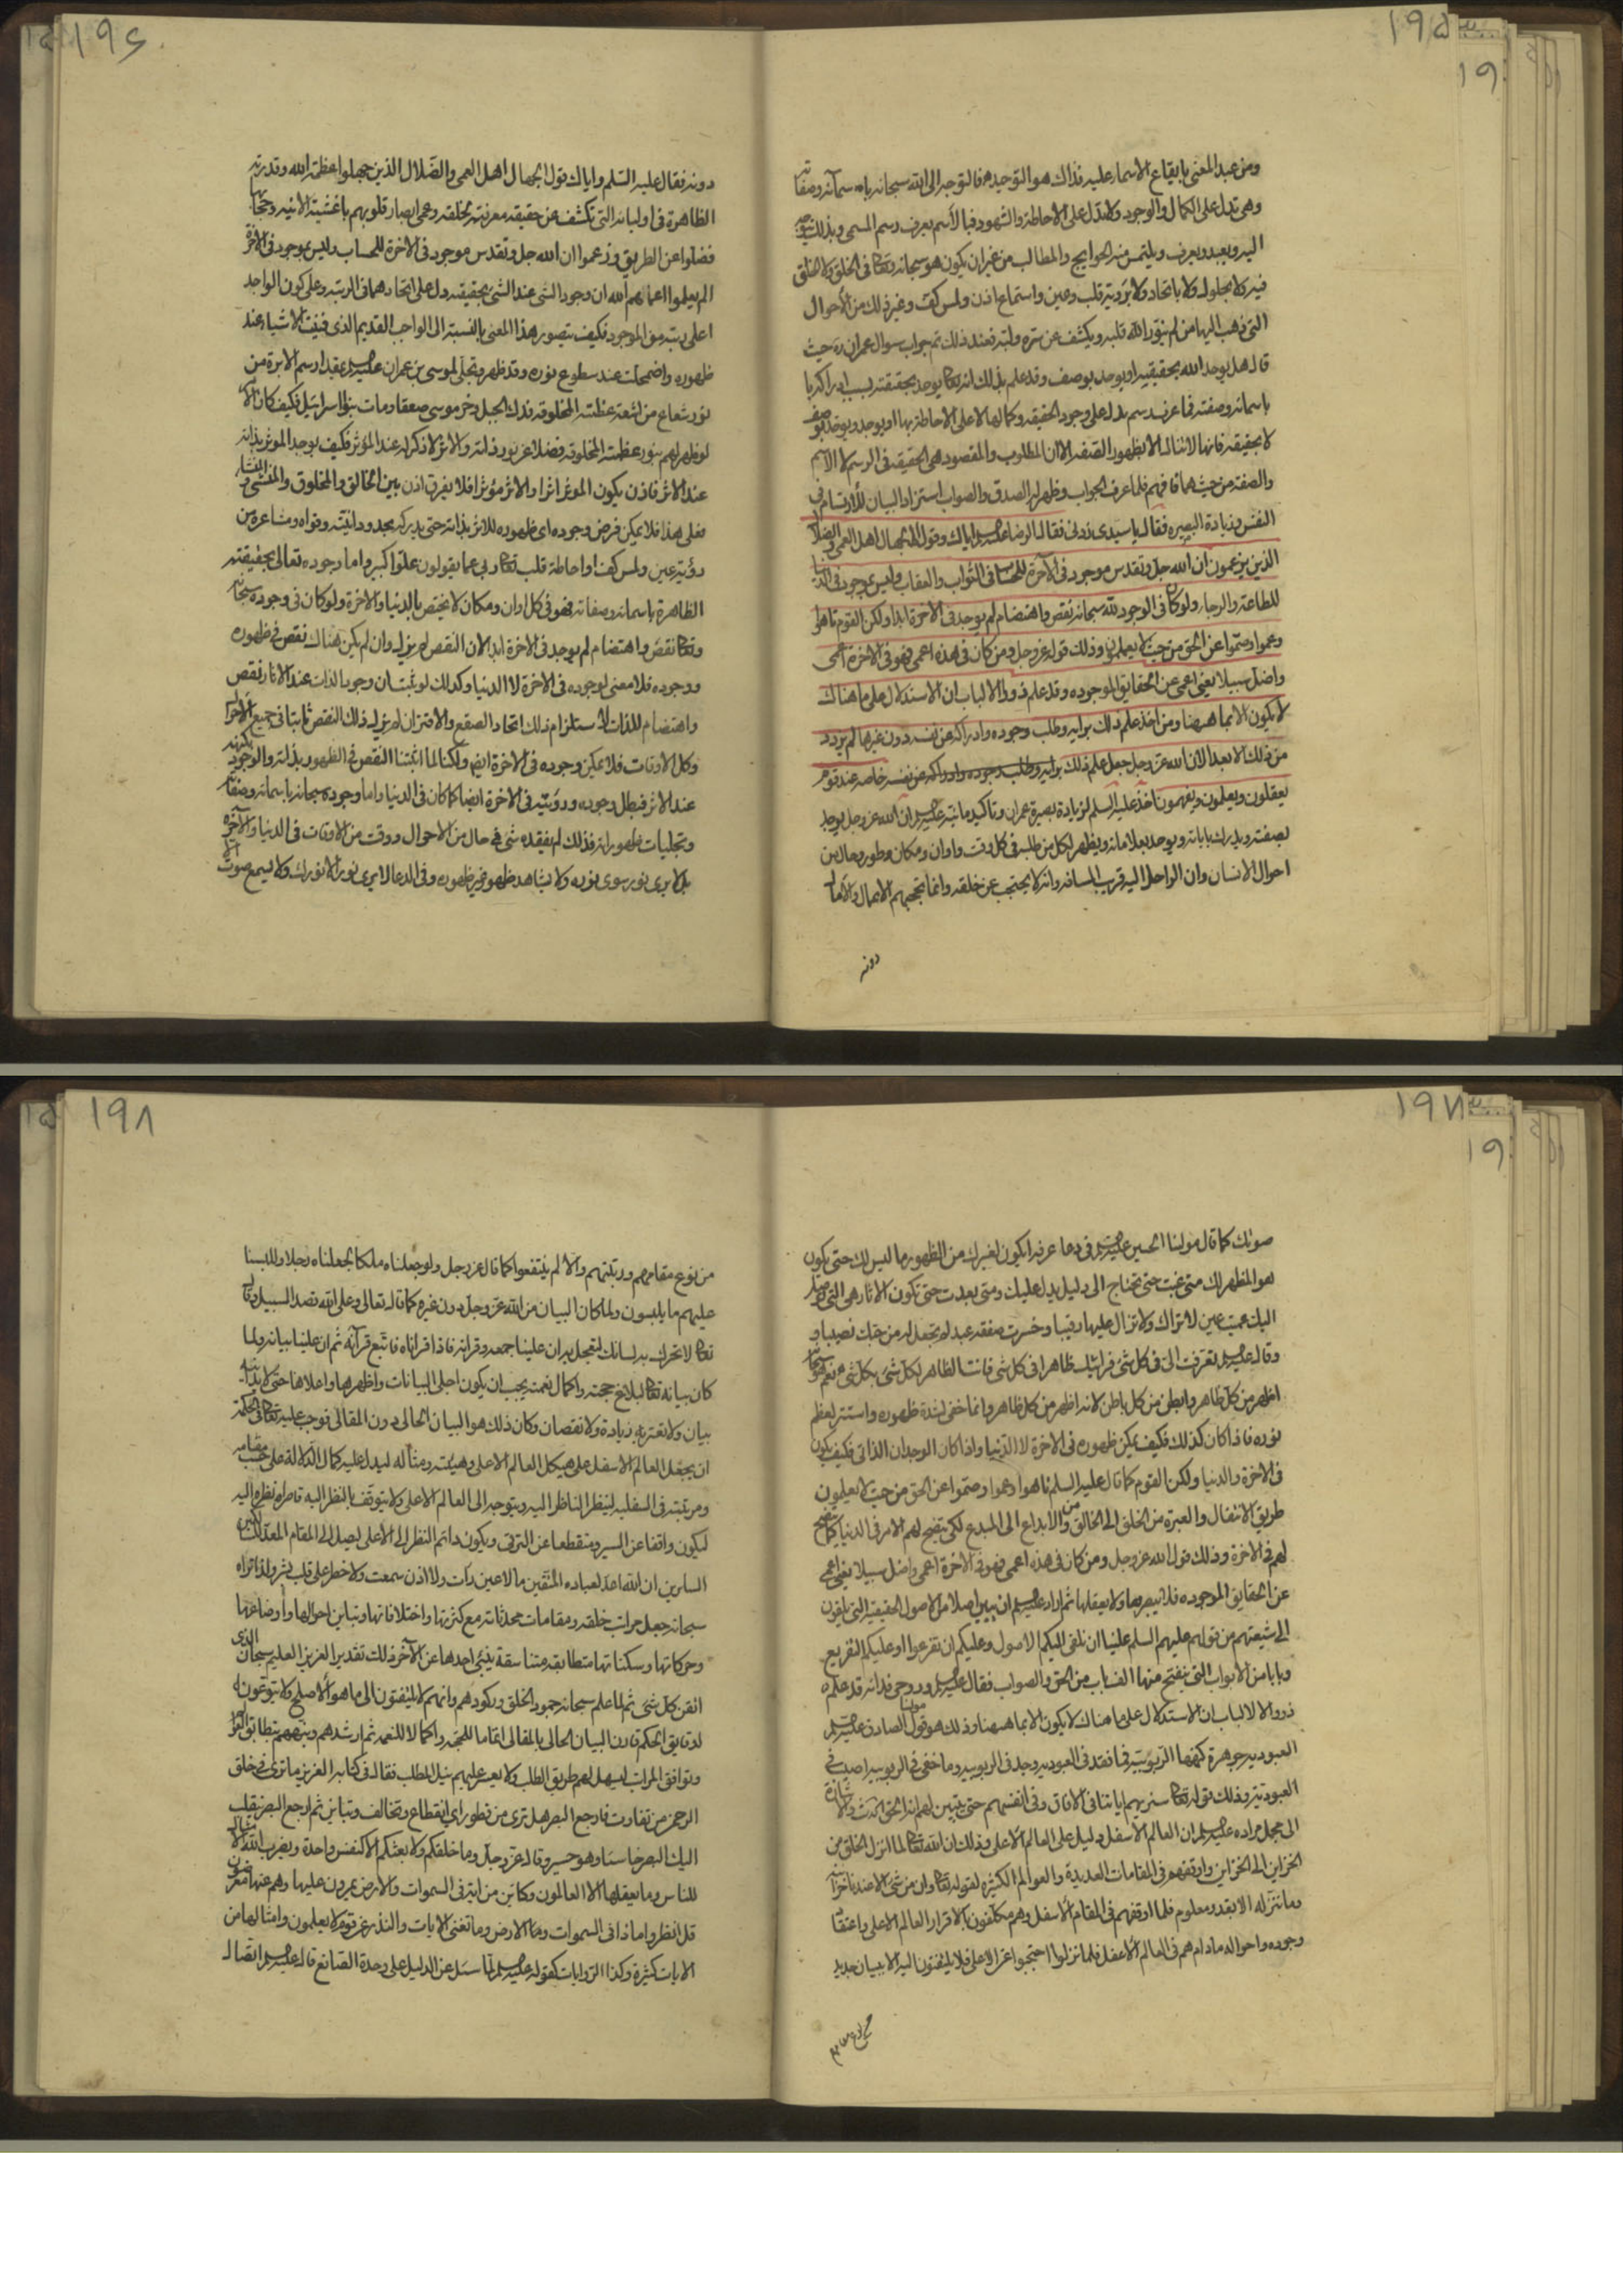 ١٩٥
١٩
ومن عبد المعنى بايقاع الاسماء عليه فذاك هو التوحيد فالتوجه الى الله سبحانه باسمائه وصفاته
وهي تدل على الكمال والوجود ولا تدل على الاحاطة والشهود فبالاسم يعرف رسم المسمى وبذلك يتوجه
اليه ويعبد ويعرف ويلتمس منه الحوايج والمطالب من غير ان يكون هو سبحانه وتعالى في الخلق ولا الخلق
فيه لا بحلول ولا باتحاد ولا برؤية قلب وعين واستماع اذن ولمس كف وغير ذلك من الأحوال
التي ذهب اليها من لم ينور الله قلبه ويكشف عن سره ولبه فعند ذلك تم جواب سوال عمران ره حيث
قال هل يوجد الله بحقيقته او يوجد بوصف وقد علم بذلك انه تعالى لا يوجد بحقيقته بل ادراكه
باسمائه وصفته فما عرف رسم يدل على وجود الحقيقة وكمالها لا على الاحاطة بها او يوجد ويوجد بوصف
لا بحقيقة فانها لا تنال الا بظهور الصفة الا ان المطلوب والمقصود هي الحقيقة في الرسم لا الاسم
والصفة من حيث هما فافهم فلما عرف الجواب وظهر له الصدق والصواب استزاد البيان للارتسام في
النفس وزيادة البصيرة فقال يا سيدي زدني فقال الرضا عليه السلم اياك وقول الجهال اهل العمى والضلال
الذين يزعمون ان الله جل وتقدس موجود في الآخرة للحساب في الثواب والعقاب وليس بموجود في الدنيا
للطاعة والرجاء ولو كان في الوجود لله سبحانه نقص واهتضام لم يوجد في الاخرة ابدا ولكن القوم تاهوا
وعموا وصموا عن الحق من حيث لا يعلمون وذلك قوله عز وجل ومن كان في هذه اعمى فهو في الاخرة اعمى
واضل سبيلا يعني اعمى عن الحقايق الموجوده وقد علم ذووا الالباب ان الاستدلال على ما هناك
لا يكون الا بما هيهنا ومن اخذ علم ذلك برايه وطلب وجوده وادراكه عن نفسه دون غيرها لم يزدد
من ذلك الا بعدا لان الله عز وجل جعل علم ذلك برايه وطلب وجوده وادراكه عن نفسه خاصه عند قوم
يعقلون ويعلمون ويفهمون اخذ عليه السلم لزيادة بصيرة عمران وتاكيد ما بينه عليه السلم ان الله عز وجل يوجد
بصفته ويدرك باياته ويوجد بعلاماته ويظهر لكل من طلبه في كل وقت واوان ومكان وطور وحال من
احوال الانسان وان الراحل اليه قريب المسافة وانه لا يحتجب عن خلقه وانما تحجبهم الاعمال والآمال
دونه
١٩٦
دونه فقال عليه السلم واياك قول الجهال اهل العمى والضلال الذين جهلوا عظمة الله وقدرته
الظاهرة في اوليائه التي تكشف عن حقيقة معرفته لخلقه وعمي ابصار قلوبهم باغشية الانيه وحجا
فضلوا عن الطريق وزعموا ان الله جل وتقدس موجود في الاخرة للحساب وليس بموجود في الاخرة
الم يعلموا اعماهم الله ان وجود الشئ عند الشئ بحقيقته دل على اتحادهما في الرتبه وعلى كون الواجد
اعلى رتبة من الموجود فكيف يتصور هذا المعنى بالنسبة الى الواجب القديم الذي فنيت الاشياء عند
ظهوره واضمحلت عند سطوع نوره وقد ظهر وتجلى لموسى بن عمران عليه السلم بمقدار سم الابرة من
نور شعاع من اشعة عظمته المخلوقة فدك الجبل وخر موسى صعقا ومات بنوا اسرائيل فكيف كان الأمر
لو ظهر لهم بنور عظمته المخلوقه فضلا عن نور ذاته والاثر لا ذكر له عند المؤثر فكيف يوجد الموثر بذاته
عند الاثر فاذن يكون الموثر اثرا والاثر مؤثرا فلا يفرق اذن بين الخالق والمخلوق والمنشئ والمنشأ
فعلى هذا فلا يمكن فرض وجوده اي ظهوره للاثر بذاته حتى يدركه بحدود انيته وقواه ومشاعره من
رؤية عين ولمس كف او احاطة قلب تعالى ربي عما يقولون علوا كبيرا واما وجوده تعالى بحقيقته
الظاهرة باسمائه وصفاته فهو في كل اوان ومكان لا يختص بالدنيا والاخرة ولو كان في وجوده سبحانه
وتعالى نقص واهتضام لم يوجد في الاخرة ابدا لان النقص لم يزله وان لم يكن هناك نقص في ظهوره
ووجوده فلا معنى لوجوده في الاخرة لا الدنيا وكذلك لو ثبت ان وجود الذات عند الاثار نقص
واهتضام للذات لاستلزام ذلك اتحاد الصقع والاقتران لم يزله ذلك النقص ثابتا في جميع الاحوال
وكل الاوقات فلا يمكن وجوده في الاخرة ايضا ولكنا لما اثبتنا النقص في الظهور بذاته والوجود بكنهه
عند الاثر فبطل وجوده ورؤيته في الاخرة ايضا كما كان في الدنيا واما وجوده سبحانه باسمائه وصفاته
وتجليات ظهوراته فذلك لم يفقده شئ في حال من الاحوال ووقت من الاوقات في الدنيا والآخرة
بل لا يرى نور سوى نوره ولا يشاهد ظهور غير ظهوره وفي الدعا لا يرى نور الا نورك ولا يسمع صوت الا
١٩٧
١٩
صوتك كما قال مولينا الحسين عليه السلم في دعا عرفه ايكون لغيرك من الظهور ما ليس لك حتى يكون
هو المظهر لك متى غبت حتى تحتاج الى دليل يدل عليك ومتى بعدت حتى تكون الاثار هي التي توصل
اليك عميت عين لا تراك ولا تزال عليها رقيبا وخسرت صفقة عبد لم تجعل له من حبك نصيبا و
وقال عليه السلم تعرفت الي في كل شئ فرايتك ظاهرا في كل شئ فانت الظاهر لكل شئ بكل شئ نعم هو سبحانه
اظهر من كل ظاهر وابطن من كل باطن لانه اظهر من كل ظاهر وانما خفي لشدة ظهوره واستتر لعظم
نوره فاذا كان كذلك فكيف يمكن ظهوره في الاخرة لا الدنيا واذا كان الوجدان الذاتي فكيف يكون
في الاخرة والدنيا ولكن القوم كما قال عليه السلم تاهوا وعموا وصموا عن الحق من حيث لا يعلمون
طريق الانتقال والعبرة من الخلق الى الخالق ومن الابداع الى المبدع لكي يتضح لهم الامر في الدنيا كما يتضح
لهم في الاخرة وذلك قول الله عز وجل ومن كان في هذه اعمى فهو في الاخرة اعمى واضل سبيلا يعني اعمى
عن الحقايق الموجوده فلا يبصرها ولا يعقلها ثم اراد عليه السلم ان يبين اصلا من الاصول الحقيقية التي يلقون
الى شيعتهم من قولهم عليهم السلم علينا ان نلقي اليكم الاصول وعليكم ان تفرعوا او عليكم التفريع
وبابا من الابواب التي ينفتح منها الف باب من الحق والصواب فقال عليه السلم وروحي فداه قد علم
ذووا الالباب ان الاستدلال على ما هناك لا يكون الا بما هيهنا وذلك هو قول مولينا الصادق عليه السلم
العبودية جوهرة كنهها الربوبية فما فقد في العبوديه وجد في الربوبيه وما خفي في الربوبيه اصيب في
العبودية وذلك قوله تعالى سنريهم اياتنا في الافاق وفي انفسهم حتى يتبين لهم انه الحق الحديث والاشارة
الى مجمل مراده عليه السلم ان العالم الاسفل دليل على العالم الاعلى وذلك ان الله تعالى لما انزل الخلق من
الخزاين الى الخزاين واوقفهم في المقامات العديدة والعوالم الكثيره لقوله تعالى وان من شئ الا عندنا خزائنه
وما ننزله الا بقدر معلوم فلما اوقفهم في المقام الاسفل وهم مكلفون بالاقرار العالم الاعلى واعتقاد
وجوده واحواله مادام هم في العالم الاسفل فلما نزلوا احتجبوا عن الاعلى فلا يلتفتون اليه الا ببيان جديد
من نوع مقامهم
١٩٨
من نوع مقامهم ورتبتهم والا لم ينتفعوا كما قال عز وجل ولو جعلناه ملكا لجعلناه رجلا وللبسنا
عليهم ما يلبسون ولما كان البيان من الله عز وجل دون غيره كما قال تعالى وعلى الله قصد السبيل وقال
تعالى لا تحرك به لسانك لتعجل به ان علينا جمعه وقرانه فاذا قراناه فاتبع قرآنه ثم ان علينا بيانه ولما
كان بيانه تعالى لبلاغ حجته واكمال نعمته يجب ان يكون اجلى البيانات واظهرها واعلاها حتى لا يدانيه
بيان ولا تعتريه زيادة ولا نقصان وكان ذلك هو البيان الحالي دون المقالي فوجب عليه تعالى في الحكمة
ان يجعل العالم الاسفل على هيكل العالم الاعلى وهيئته ومثاله ليدل عليه كمال الدلالة على حسب مقامه
ومرتبته في السفليه لينظر الناظر اليه ويتوجه الى العالم الاعلى ولا يتوقف بالنظر اليه قاصرا نظره اليه
ليكون واقفا عن السير ومنقطعا عن الترقي ويكون دائم النظر الى الاعلى ليصل الى المقام المعد لذلك
السايرين ان الله اعد لعباده المتقين ما لا عين رأت ولا اذن سمعت ولا خطر على قلب بشر ولذا تراه
سبحانه جعل مراتب خلقه ومقامات محدثاته مع كثرتها واختلافاتها وتباين احوالها واوضاعها
وحركاتها وسكناتها متطابقة متناسقة ينبئ احدها عن الآخر ذلك تقدير العزيز العليم سبحان الذي
اتقن كل شئ ثم لما علم سبحانه جمود الخلق وركودهم وانهم لا يلتفتون الى ما هو الاصلح ولا يتوغون
لدقايق الحكم قارن البيان الحالي بالمقالي اتماما للحجة واكمالا للنعمة ثم ارشدهم ونبههم بتطابق
وتوافق المراتب ليسهل لهم طريق الطلب ولا يعسر عليهم نيل المطلب فقال في كتابه العزيز ما ترى في خلق
الرحمن من تفاوت فارجع البصر هل ترى من فطور اي انقطاع وتخالف وتباين ثم ارجع البصر ينقلب
اليك البصر خاسئا وهو حسير وقال عز وجل وما خلقكم ولا بعثكم الا كنفس واحدة ويضرب الله الامثال
للناس وما يعقلها الا العالمون وكاين من اية في السموات والارض يمرون عليها وهم عنها معرضون
قل انظروا ماذا في السموات والارض وما تغني الايات والنذر عن قوم لا يعلمون وامثالها من
الايات كثيرة وكذا الروايات كقوله عليه السلم لما سئل عن الدليل على وحدة الصانع قال عليه السلم اتصال